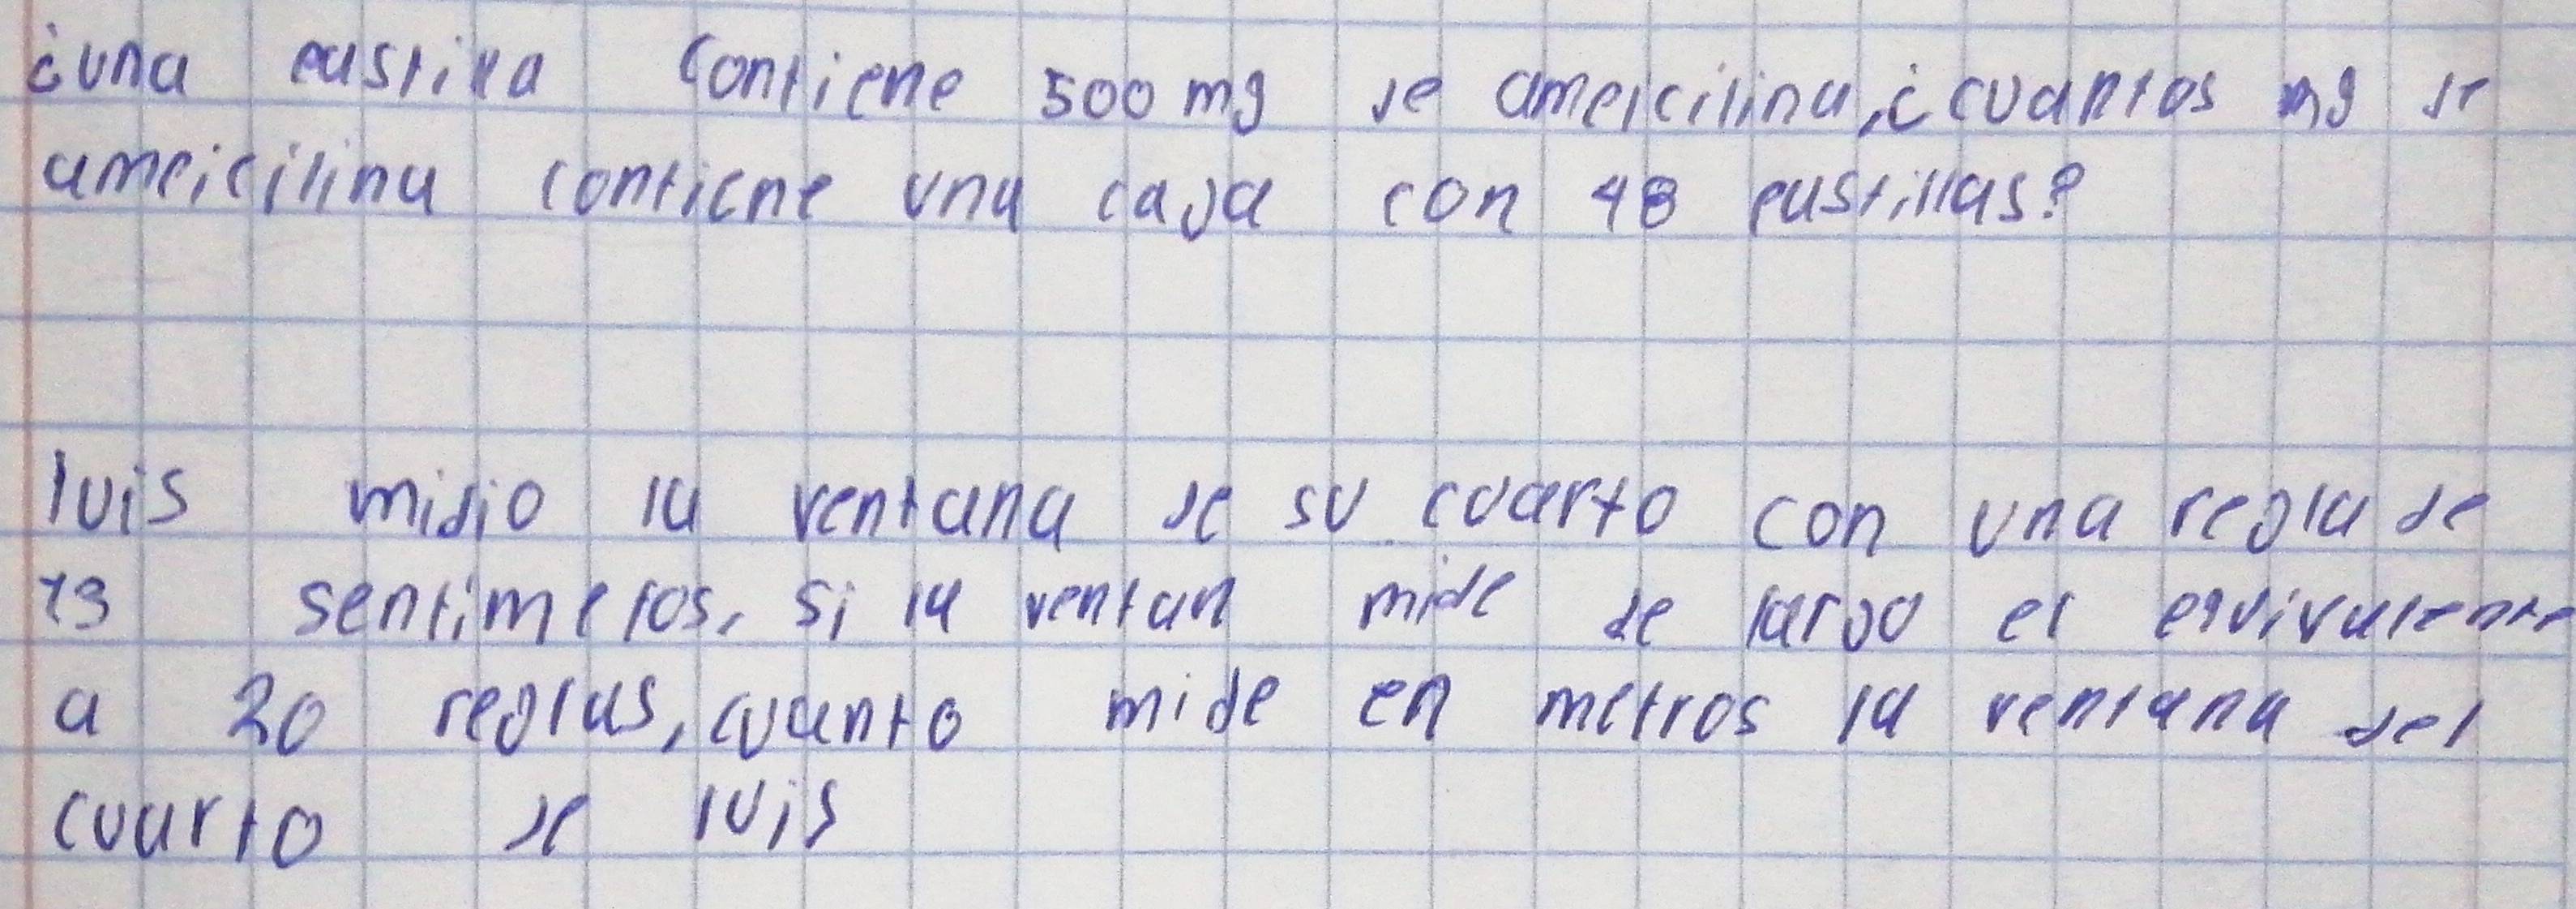 ¿una pastilla contiene 500 mg de ampicilina, ¿cuantos mg de
ampicilina contiene una caja con 48 pastillas?
luis midio la ventana de su cuarto con una regla de
13 sentimetos, si la ventan mide de largo el equivalente
a 20 reglas, cuanto mide en metros la ventana del
cuarto de luis